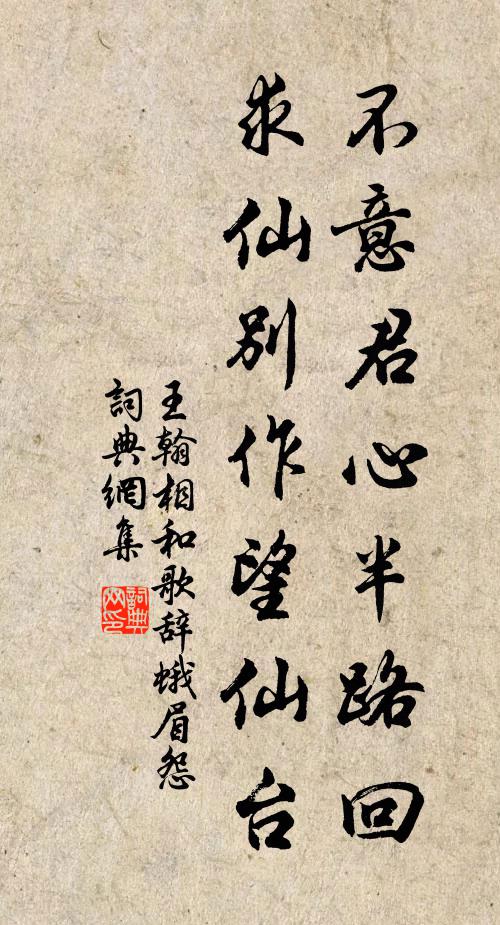 不意君心半路回
求仙别作望仙台
王翰相和歌辞蛾眉怨
詞典網集
詞典网印